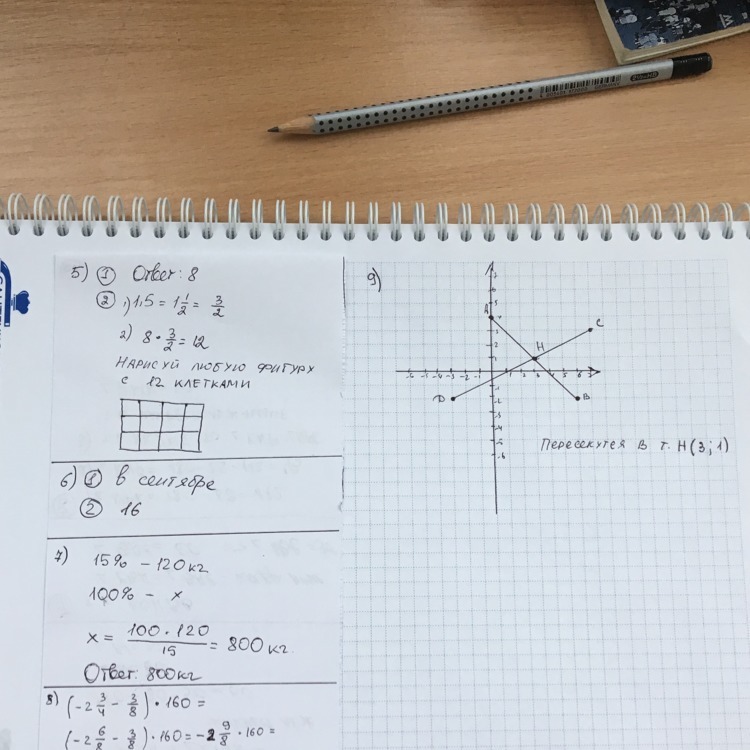 5) ① Ответ: 8
② 1) 1,5 = 1 1/2 = 3/2
2) 8 · 3/2 = 12
НАРИСУЙ ЛЮБУЮ ФИГУРУ
С 12 КЛЕТКАМИ
6) ① в сентябре
② 16
7) 15% – 120 кг
100% – x
x = 100 · 120 / 15 = 800 кг
Ответ: 800 кг
8) (-2 3/4 - 3/8) · 160 =
(-2 6/8 - 3/8) · 160 = -2 9/8 · 160 =
9)
A
C
H
D
B
ПЕРЕСЕКУТСЯ В Т. H(3; 1)